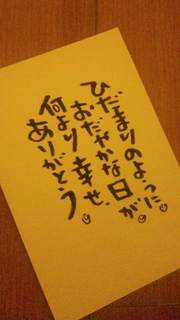 ひだまりのように
おだやかな日が
何より幸せ
ありがとう